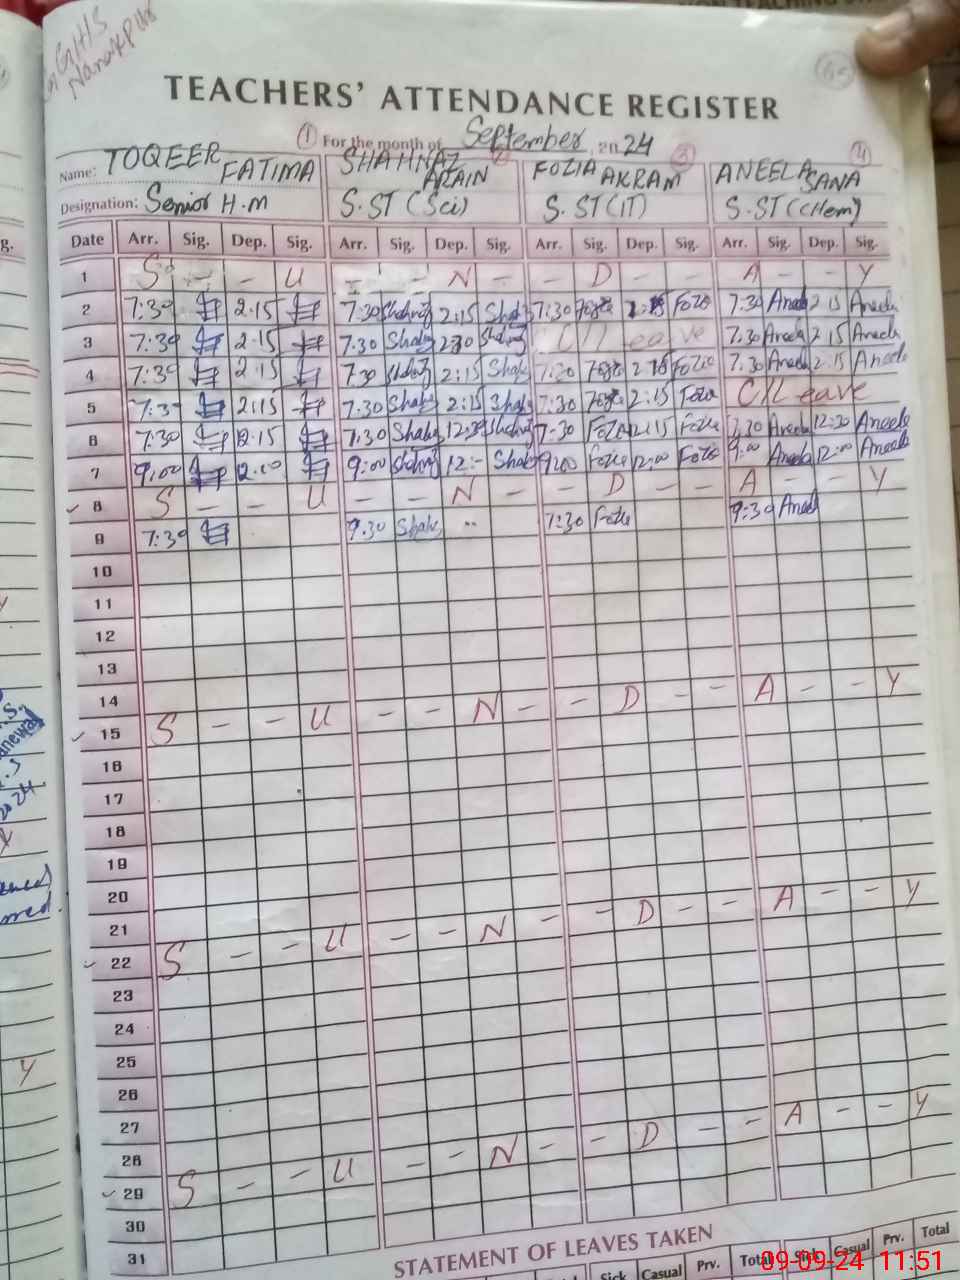 GHS
Nanakpur
TEACHERS' ATTENDANCE REGISTER
① For the month of September, 2024
Name: TOQEER FATIMA SHAHNAZ ARAIN 2 FOZIA AKRAM 3 ANEELA SANA 4
Designation: Senior H.M S.ST (Sci) S.ST (IT) S.ST (CHem)
Date Arr. Sig. Dep. Sig. Arr. Sig. Dep. Sig. Arr. Sig. Dep. Sig. Arr. Sig. Dep. Sig.
1 S - - U - - N - - D - - A - - Y
2 7:30 2.15 7:30 2:15 7:30 7:30 Aneela 2 15 Aneela
3 7:30 2.15 7.30 2:30 C/Leave 7.30 Aneela 2 15 Aneela
4 7:30 2.15 7:30 2:15 7:30 2:15 7.30 Aneela 2.15 Aneela
5 7:30 2:15 7.30 2:15 7:30 2:15 C/Leave
6 7:30 12.15 7.30 12:30 7-30 12:15 7.30 Aneela 12:30 Aneela
7 9:00 12:00 9:00 12:- 9:00 12:00 9:00 Aneela 12:00 Aneela
8 S - - U - - N - - D - - A - - Y
9 7:30 9:30 7:30 9:30 Aneela
10
11
12
13
14
15 S - - U - - N - - D - - A - - Y
16
17
18
19
20
21
22 S - - U - - N - - D - - A - - Y
23
24
25
26
27
28
29 S - - U - - N - - D - - A - - Y
30
31
STATEMENT OF LEAVES TAKEN
Sick Casual Prv. Total Sick Casual Prv. Total
09-09-24 11:51